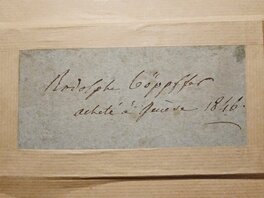 Rodolphe Töppffer
acheté à Genève 1846.